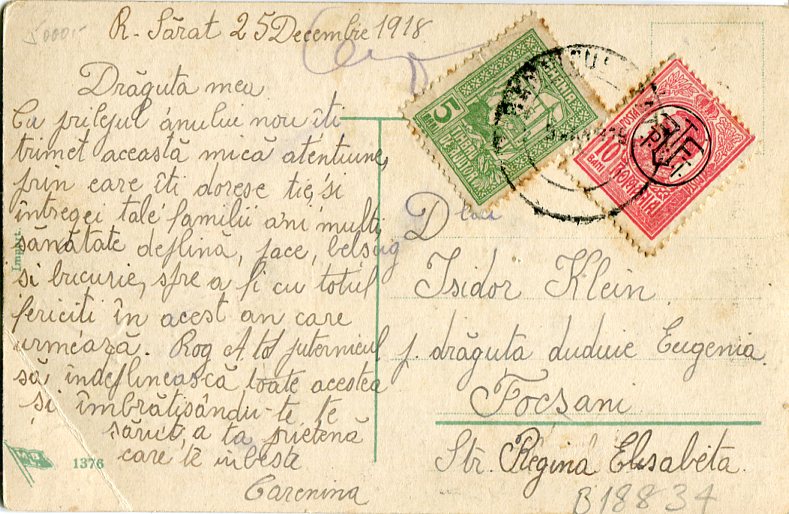 R. Sărat 25 Decembrie 1918
Drăguta mea
Cu prilejul anului nou îti
trimet această mică atentiune,
prin care îti doresc tie, si
întregei tale familii ani multi,
sănătate deplină, pace, belsug
si bucurie, spre a fi cu totul
fericiti în acest an care
urmează. Rog A tot puternicul
să îndeplinească toate acestea
si îmbrătisându-te te
sărută a ta prietenă
care te iubeste
Carenina
5
5 BANI
AJUTORUL
10
BANI
ROMANIA
D
Isidor Klein
p. drăguta duduie Eugenia
Focsani
Str. Regina Elisabeta.
Import.
1376
B18834